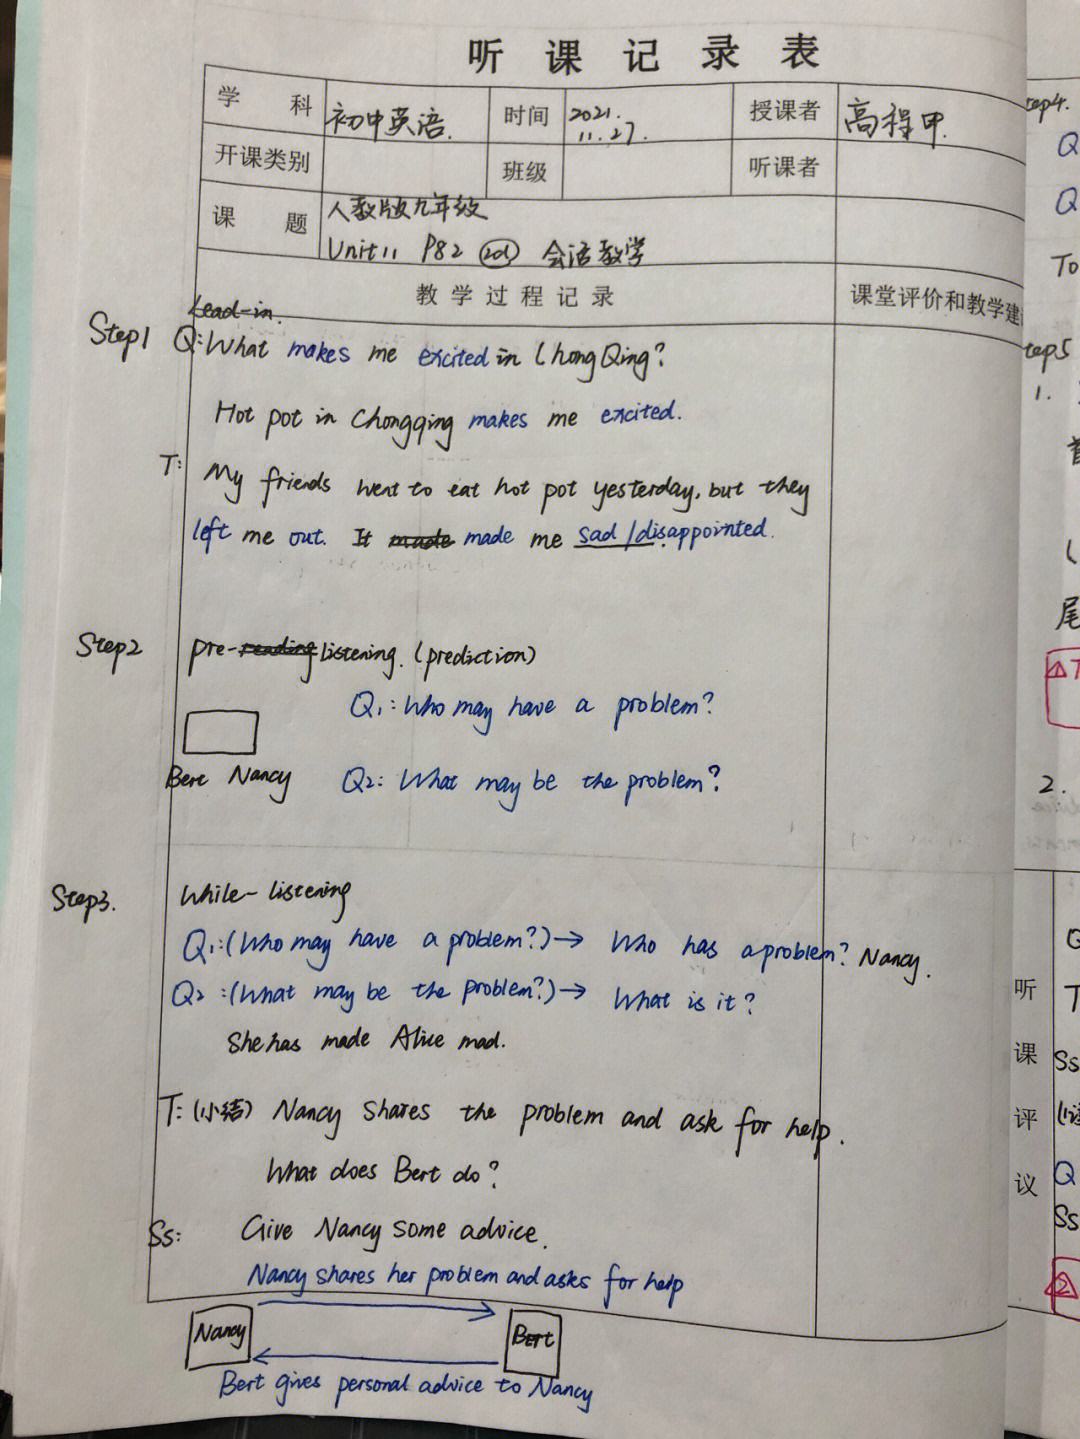 听课记录表
学科 初中英语. 时间 2021.11.27. 授课者 高程甲.
开课类别 班级 听课者
课题 人教版九年级
Unit 11 P82 2d 会话教学
教学过程记录 课堂评价和教学建
Lead-in.
Step1 Q: What makes me excited in ChongQing?
Hot pot in Chongqing makes me excited.
T: My friends went to eat hot pot yesterday, but they
left me out. It made made me sad/disappointed.
Step2 pre-reading listening. (prediction)
Q1: Who may have a problem?
Bert Nancy Q2: What may be the problem?
Step3. While-listening
Q1: (Who may have a problem?)→ Who has a problem? Nancy.
Q2: (What may be the problem?)→ What is it?
She has made Alice mad.
T: (小结) Nancy shares the problem and ask for help.
What does Bert do?
Ss: Give Nancy some advice.
Nancy shares her problem and asks for help
Nancy Bert
Bert gives personal advice to Nancy
tep4.
Q
Q
To
tep5
1.
(
尾
T
2.
听课评议
T
Ss
Q
Ss
2